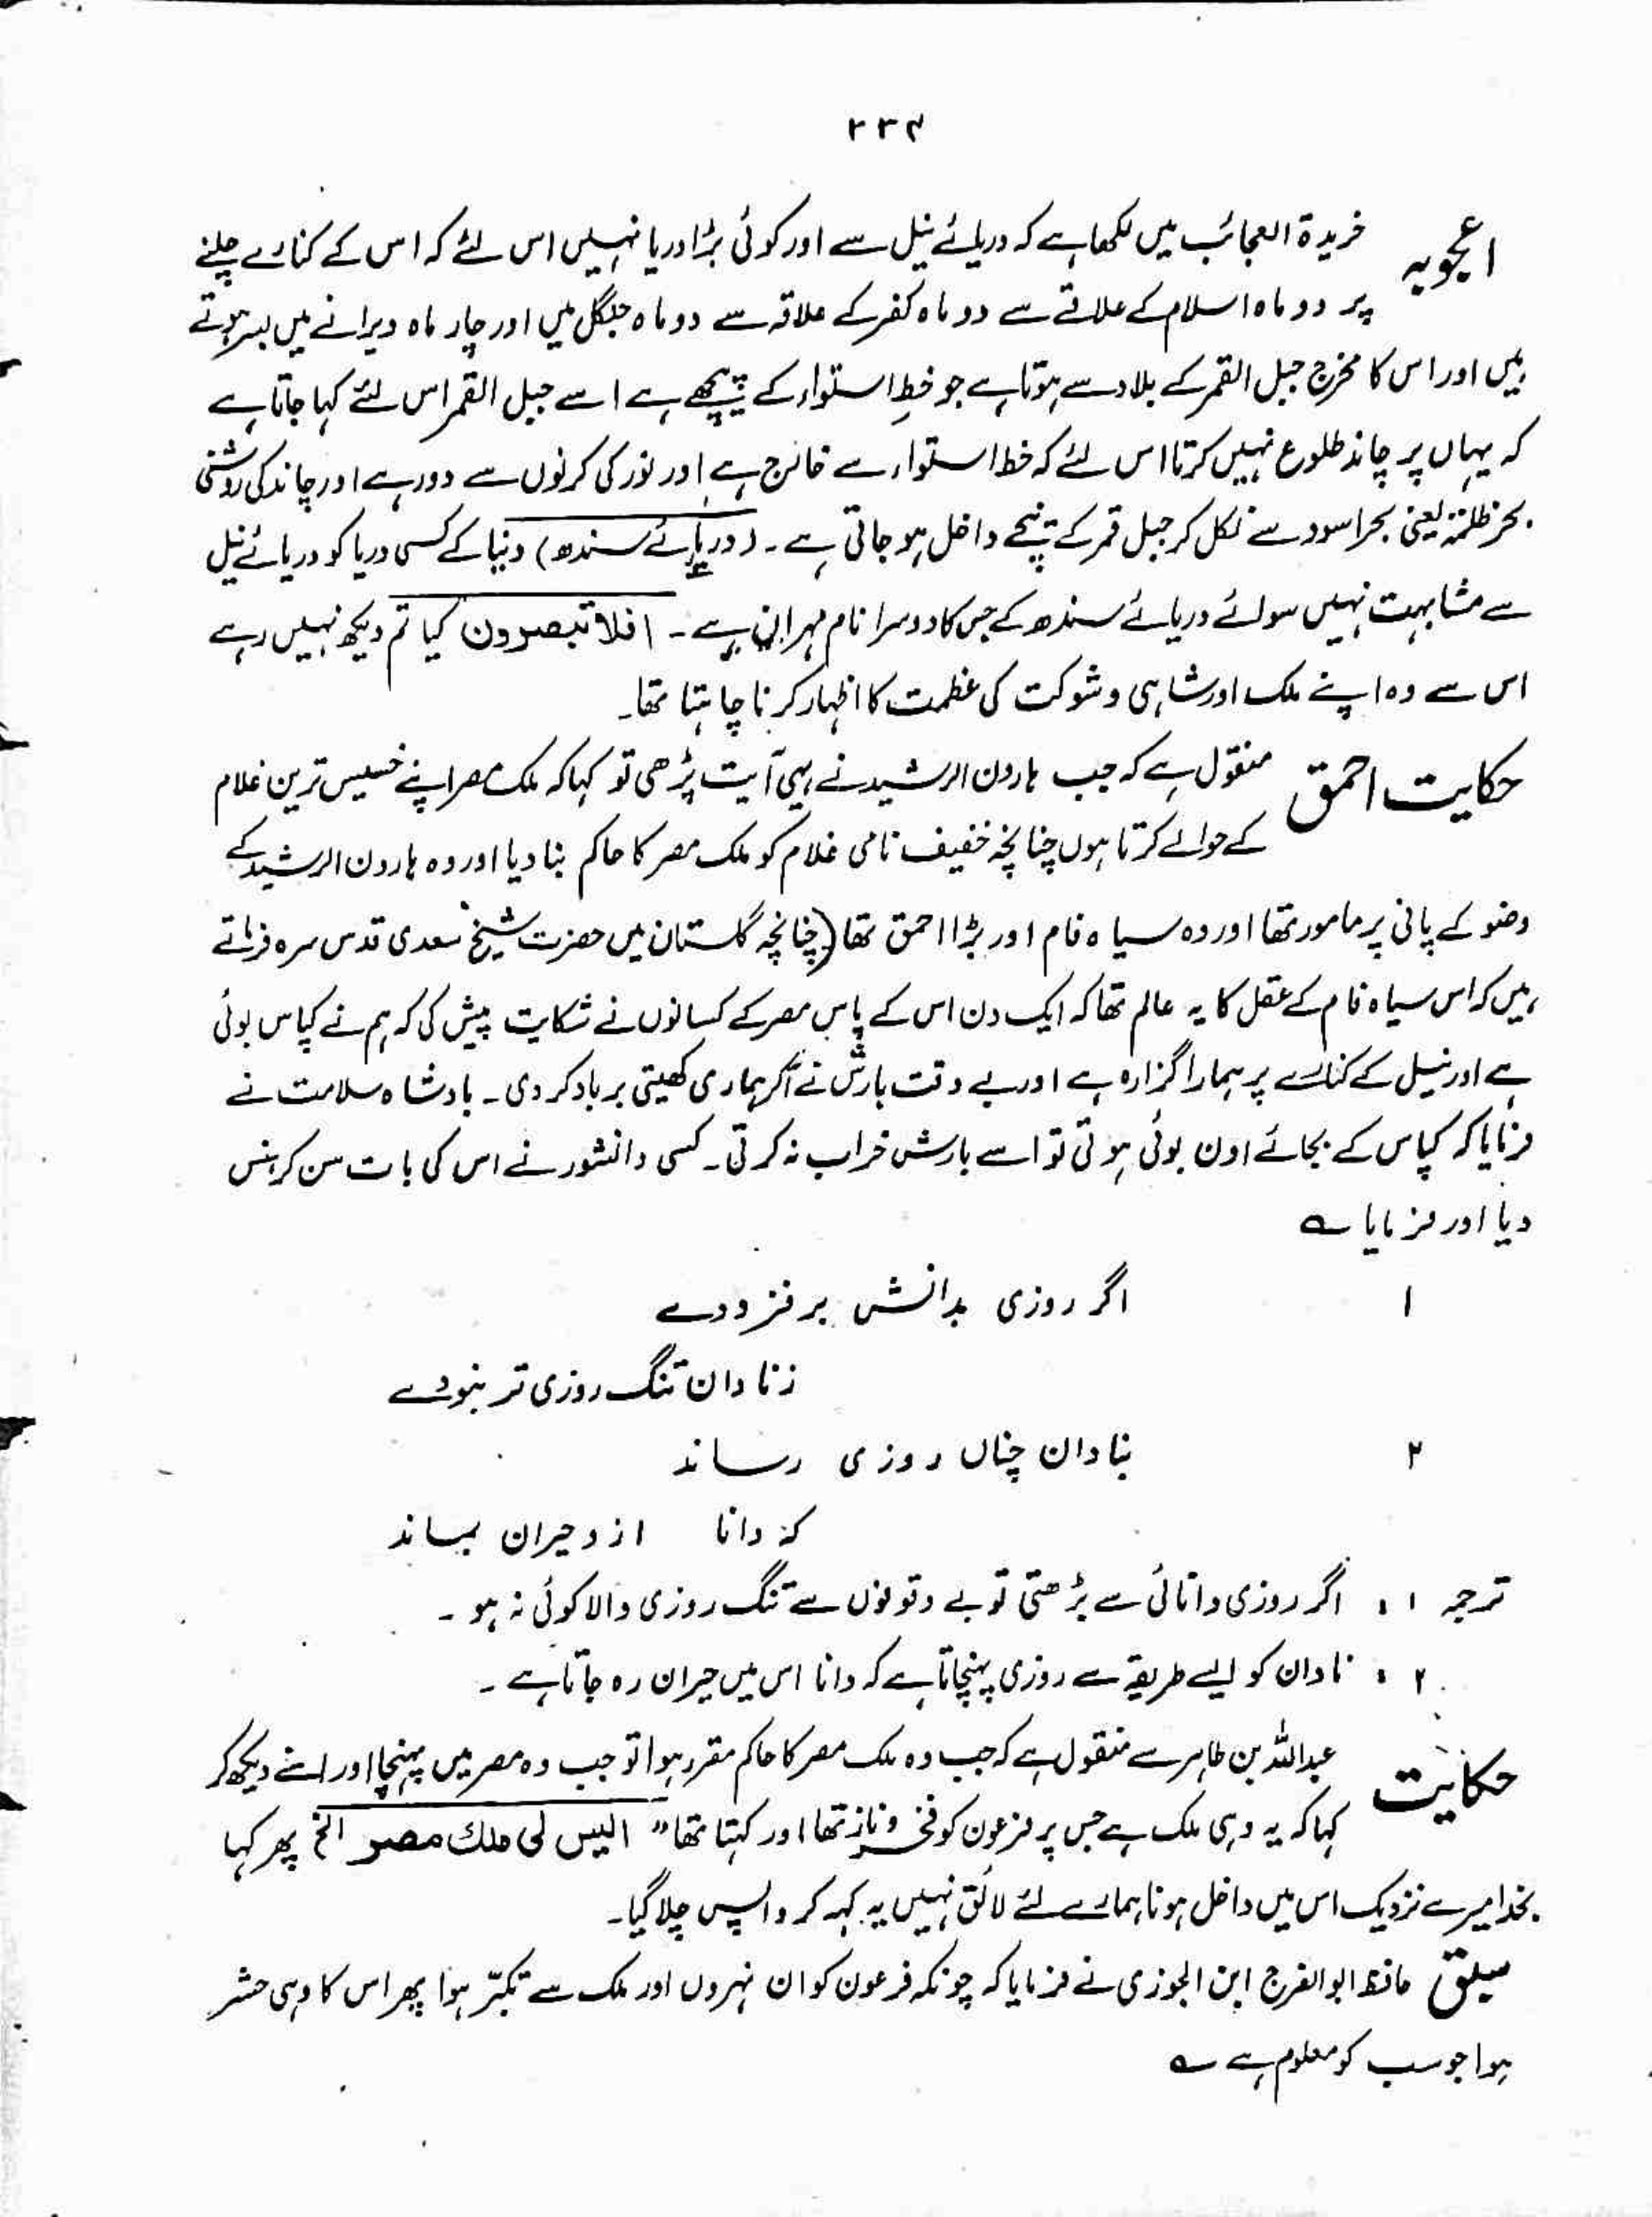 ۲۳۴
اعجوبہ خریدۃ العجائب میں لکھا ہے کہ دریائے نیل سے اور کوئی بڑا دریا نہیں اس لئے کہ اس کے کنارے چلنے
پر دو ماہ اسلام کے علاقے سے دو ماہ کفر کے علاقہ سے دو ماہ جنگل میں اور چار ماہ ویرانے میں بسر ہوتے
ہیں اور اس کا مخرج جبل القمر کے بلاد سے ہوتا ہے جو خطِ استواء کے پیچھے ہے اسے جبل القمر اس لئے کہا جاتا ہے
کہ یہاں پر چاند طلوع نہیں کرتا اس لئے کہ خط استواء سے خارج ہے اور نور کی کرنوں سے دور ہے اور چاند کی روشنی
بحر ظلمۃ یعنی بحر اسود سے نکل کر جبل قمر کے نیچے داخل ہو جاتی ہے ۔ (دریائے سندھ) دنیا کے کسی دریا کو دریائے نیل
سے مشابہت نہیں سوائے دریائے سندھ کے جس کا دوسرا نام مہران ہے ۔ افلا تبصرون کیا تم دیکھ نہیں رہے
اس سے وہ اپنے ملک اور شاہی و شوکت کی عظمت کا اظہار کرنا چاہتا تھا۔
حکایت احمق منقول ہے کہ جب ہارون الرشید نے یہی آیت پڑھی تو کہا کہ ملک مصر اپنے خسیس ترین غلام
کے حوالے کرتا ہوں چنانچہ خفیف نامی غلام کو ملک مصر کا حاکم بنا دیا اور وہ ہارون الرشید کے
وضو کے پانی پر مامور تھا اور وہ سیاہ فام اور بڑا احمق تھا (چنانچہ گلستان میں حضرت شیخ سعدی قدس سرہ فرماتے
ہیں کہ اس سیاہ فام کے عقل کا یہ عالم تھا کہ ایک دن اس کے پاس مصر کے کسانوں نے شکایت پیش کی کہ ہم نے کپاس بوئی
ہے اور نیل کے کنارے پر ہمارا گزارہ ہے اور بے وقت بارش نے آکر ہماری کھیتی برباد کر دی ۔ بادشاہ سلامت نے
فرمایا کہ کپاس کے بجائے اون بوئی ہوتی تو اسے بارش خراب نہ کرتی ۔ کسی دانشور نے اس کی بات سن کر ہنس
دیا اور فرمایا ؎
۱ اگر روزی بدانش بر فزودے
ز نادان تنگ روزی تر بنودے
۲ بنادان چناں روزی رساند
کہ دانا ازو حیران بماند
ترجمہ ۱ : اگر روزی دانائی سے بڑھتی تو بے وقوفوں سے تنگ روزی والا کوئی نہ ہو ۔
۲ : نادان کو ایسے طریقہ سے روزی پہنچاتا ہے کہ دانا اس میں حیران رہ جاتا ہے ۔
حکایت عبداللہ بن طاہر سے منقول ہے کہ جب وہ ملک مصر کا حاکم مقرر ہوا تو جب وہ مصر میں پہنچا اور اسے دیکھ کر
کہا کہ یہ وہی ملک ہے جس پر فرعون کو فخر و ناز تھا اور کہتا تھا " الیس لی ملك مصر الخ پھر کہا
بخدا میرے نزدیک اس میں داخل ہونا ہمارے لئے لائق نہیں یہ کہہ کر واپس چلا گیا۔
سبق حافظ ابو الفرج ابن الجوزی نے فرمایا کہ چونکہ فرعون کو ان نہروں اور ملک سے تکبّر ہوا پھر اس کا وہی حشر
ہوا جو سب کو معلوم ہے ؎